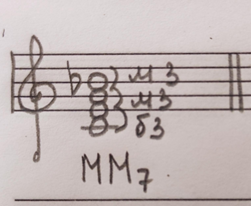 м 3
м 3
б 3
ММ7